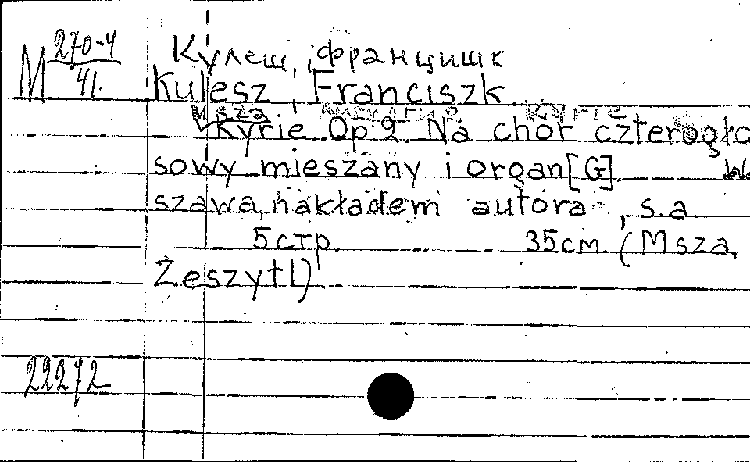 М 270-4/41.
Кулеш, Францишк
Kulesz, Franciszk
Msza Kyrie
Kyrie Op 2 Na chór czterogło
sowy mieszany i organ [G]
szawa, nakładem autora, s.a
5 стр. 35см. (Msza,
Zeszyt 1)
22272